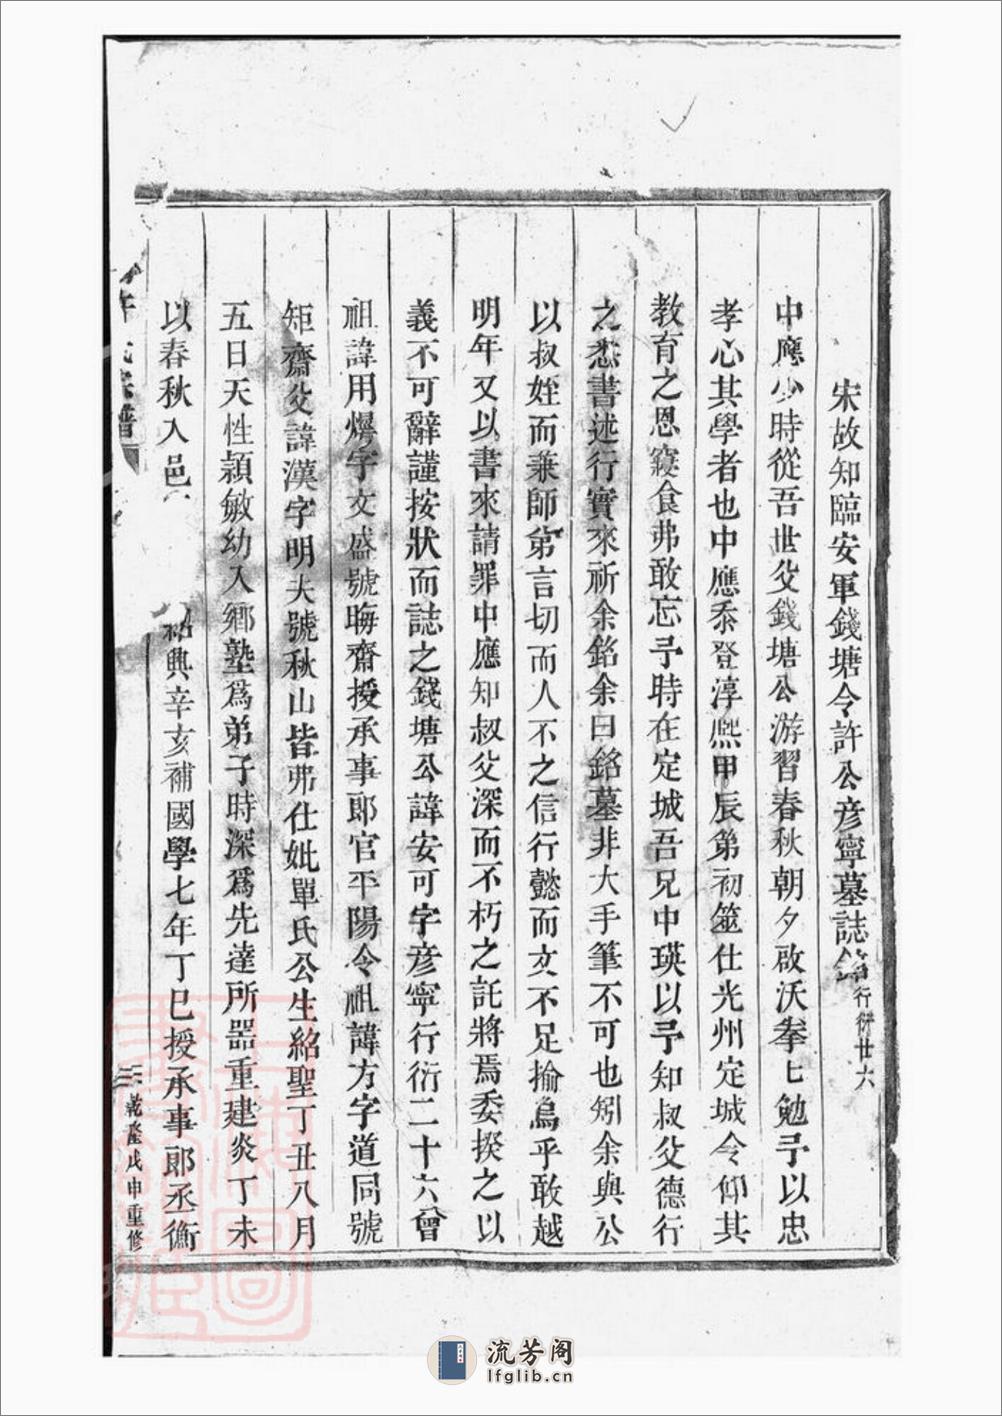 宋故知臨安軍錢塘令許公彥寧墓誌銘行衍廿六
中應少時從吾世父錢塘公游習春秋朝夕啟沃拳匕勉予以忠
孝心其學者也中應忝登淳熙甲辰第初筮仕光州定城令仰其
教育之恩寢食弗敢忘予時在定城吾兄中瑛以予知叔父德行
之悉書述行實來祈余銘余曰銘墓非大手筆不可也矧余與公
以叔姪而兼師弟言切而人不之信行懿而文不足揄烏乎敢越
明年又以書來請罪中應知叔父深而不朽之託將焉委揆之以
義不可辭謹按狀而誌之錢塘公諱安可字彥寧行衍二十六曾
祖諱用燁字文盛號晦齋授承事郎官平陽令祖諱方字道同號
矩齋父諱漢字明夫號秋山皆弗仕妣單氏公生紹聖丁丑八月
五日天性穎敏幼入鄉塾為弟子時深為先達所器重建炎丁未
以春秋入邑 紹興辛亥補國學七年丁巳授承事郎丞衡
許氏宗譜
三 乾隆戊申重修
流芳阁
lfglib.cn